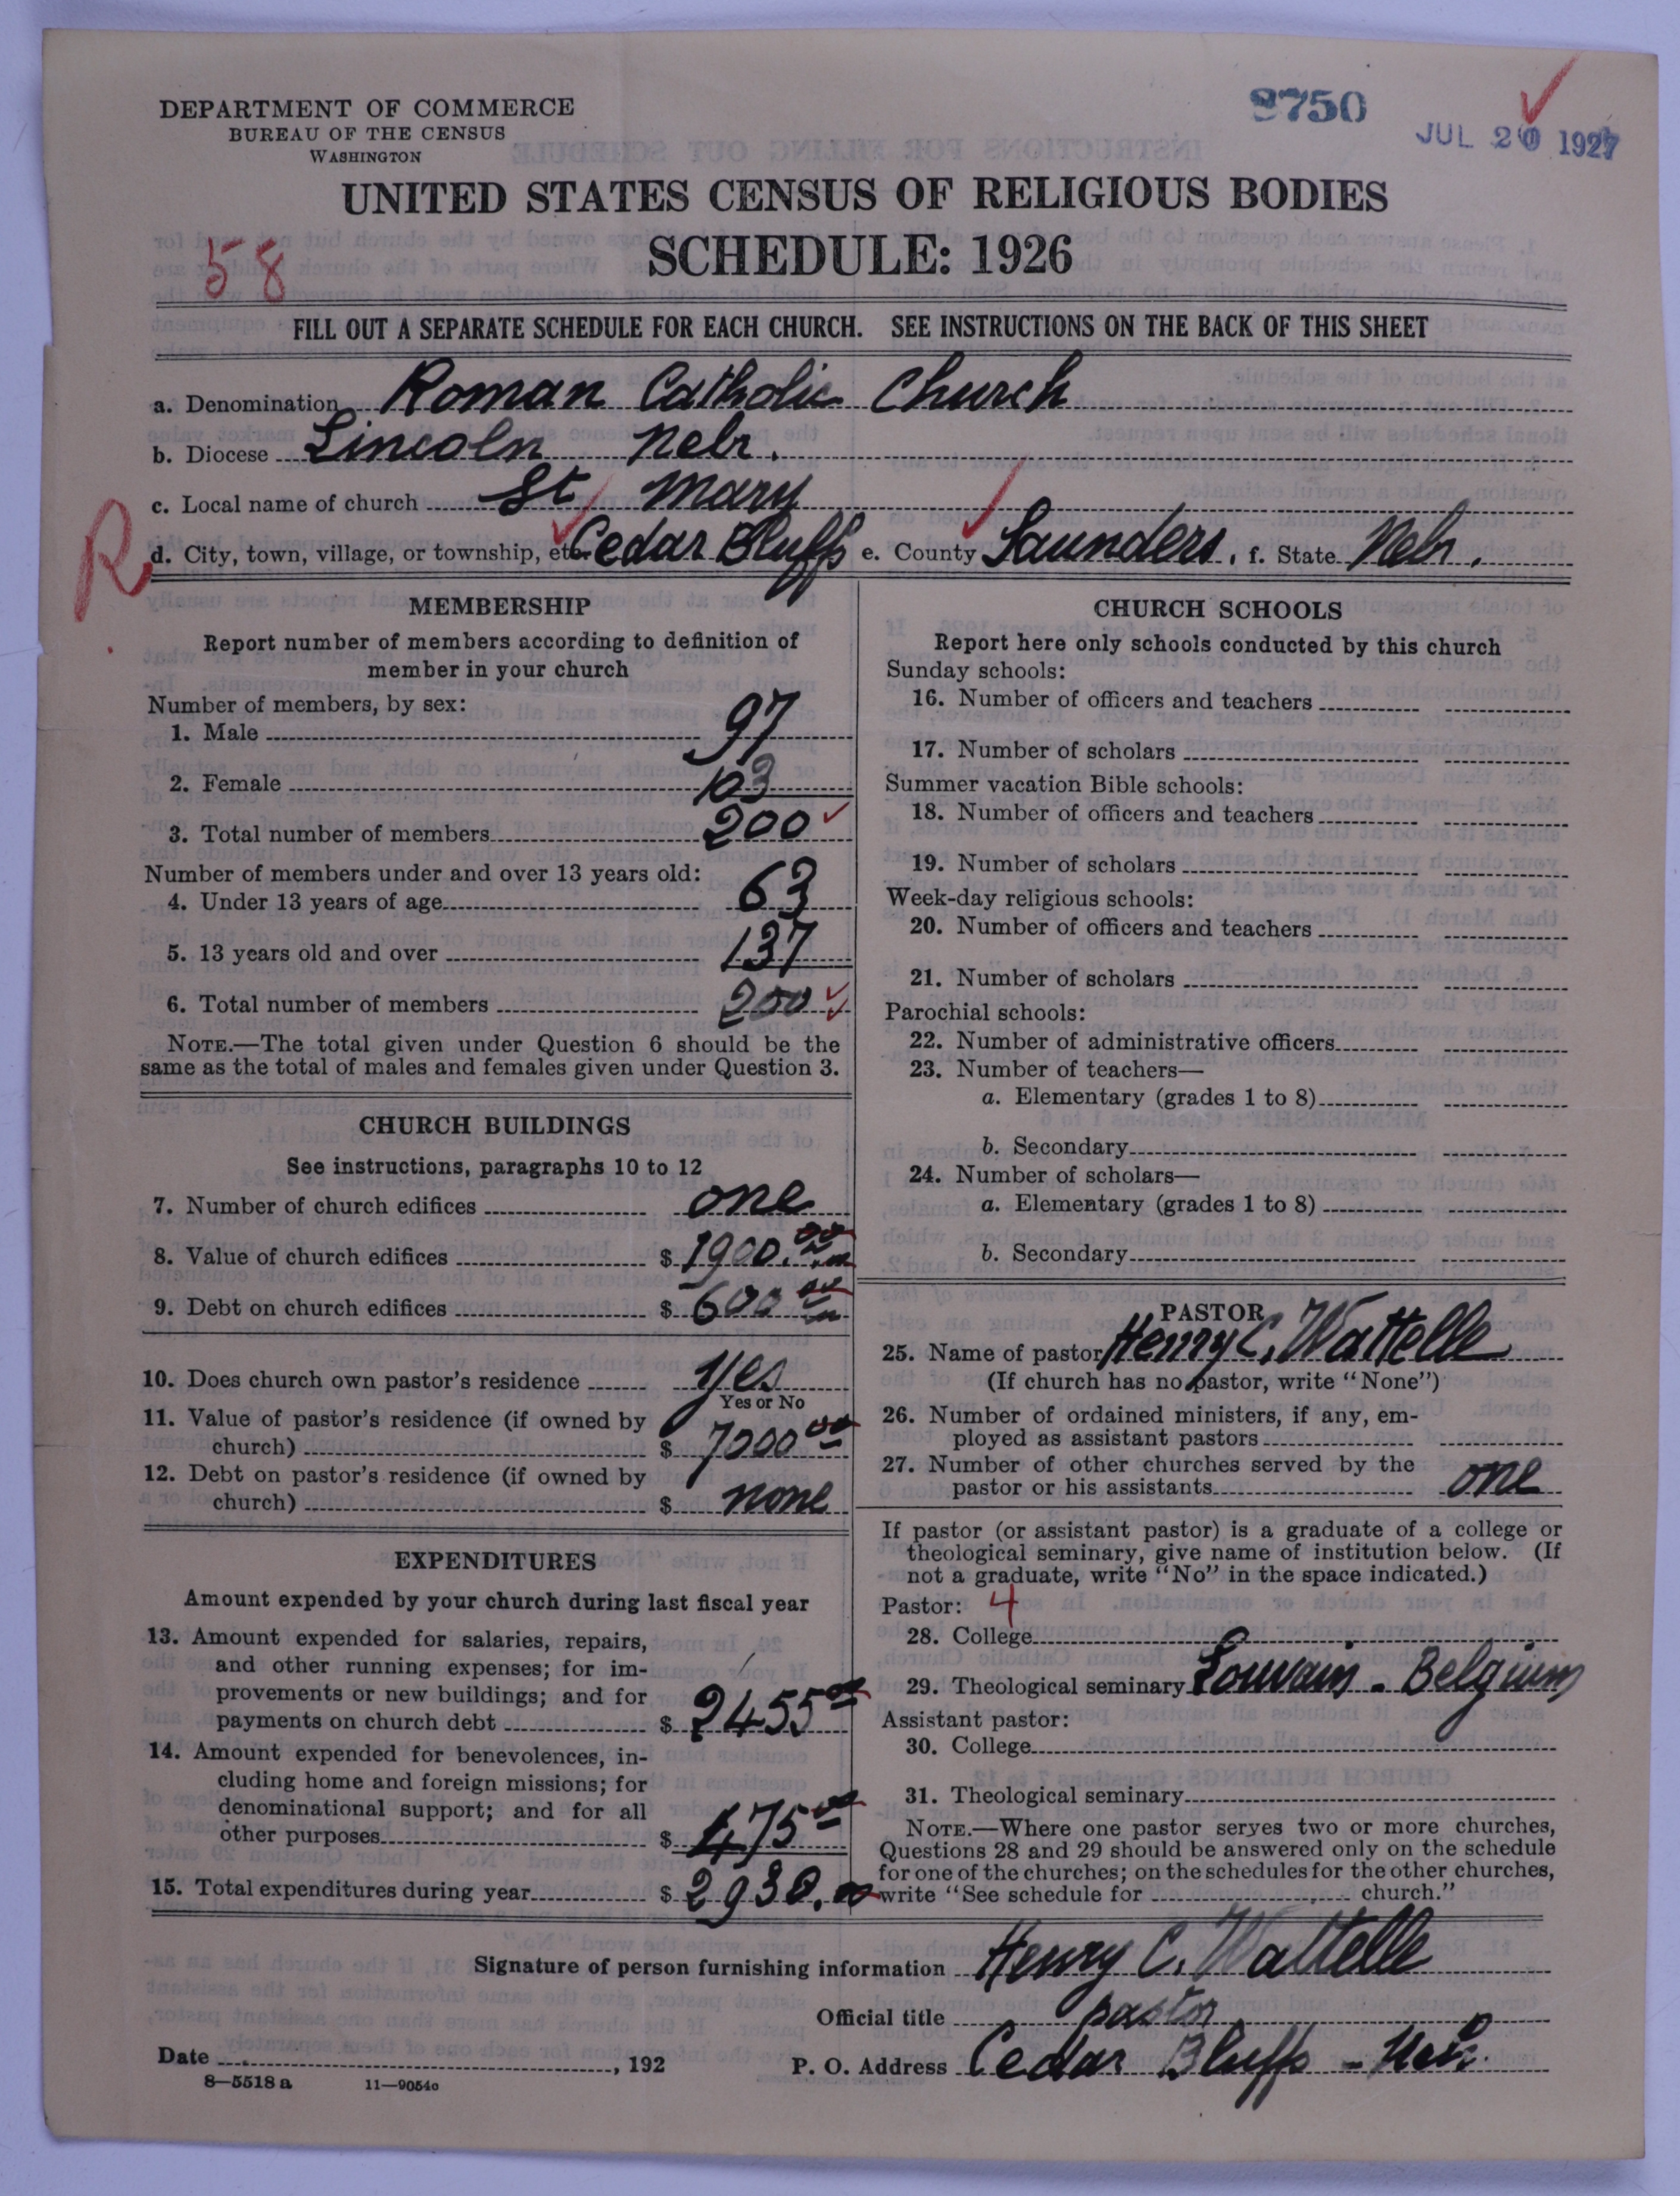 DEPARTMENT OF COMMERCE
BUREAU OF THE CENSUS
WASHINGTON
8750
JUL 20 1927
UNITED STATES CENSUS OF RELIGIOUS BODIES
SCHEDULE: 1926
58
FILL OUT A SEPARATE SCHEDULE FOR EACH CHURCH. SEE INSTRUCTIONS ON THE BACK OF THIS SHEET
a. Denomination Roman Catholic Church
b. Diocese Lincoln Nebr.
c. Local name of church St Mary
R d. City, town, village, or township, etc. Cedar Bluffs e. County Saunders. f. State Nebr.
MEMBERSHIP
Report number of members according to definition of
member in your church
Number of members, by sex:
1. Male 97
2. Female 103
3. Total number of members 200
Number of members under and over 13 years old:
4. Under 13 years of age 63
5. 13 years old and over 137
6. Total number of members 200
NOTE.—The total given under Question 6 should be the
same as the total of males and females given under Question 3.
CHURCH BUILDINGS
See instructions, paragraphs 10 to 12
7. Number of church edifices one
8. Value of church edifices $ 1900.00
9. Debt on church edifices $ 600 00
10. Does church own pastor's residence yes
Yes or No
11. Value of pastor's residence (if owned by
church) $ 7000 00
12. Debt on pastor's residence (if owned by
church) $ none
EXPENDITURES
Amount expended by your church during last fiscal year
13. Amount expended for salaries, repairs,
and other running expenses; for im-
provements or new buildings; and for
payments on church debt $ 2455 00
14. Amount expended for benevolences, in-
cluding home and foreign missions; for
denominational support; and for all
other purposes $ 475 00
15. Total expenditures during year $ 2930.00
CHURCH SCHOOLS
Report here only schools conducted by this church
Sunday schools:
16. Number of officers and teachers
17. Number of scholars
Summer vacation Bible schools:
18. Number of officers and teachers
19. Number of scholars
Week-day religious schools:
20. Number of officers and teachers
21. Number of scholars
Parochial schools:
22. Number of administrative officers
23. Number of teachers—
a. Elementary (grades 1 to 8)
b. Secondary
24. Number of scholars—
a. Elementary (grades 1 to 8)
b. Secondary
PASTOR
25. Name of pastor Henry C. Wattelle
(If church has no pastor, write "None")
26. Number of ordained ministers, if any, em-
ployed as assistant pastors
27. Number of other churches served by the
pastor or his assistants one
If pastor (or assistant pastor) is a graduate of a college or
theological seminary, give name of institution below. (If
not a graduate, write "No" in the space indicated.)
Pastor: 4
28. College
29. Theological seminary Louvain - Belgium
Assistant pastor:
30. College
31. Theological seminary
NOTE.—Where one pastor serves two or more churches,
Questions 28 and 29 should be answered only on the schedule
for one of the churches; on the schedules for the other churches,
write "See schedule for church."
Signature of person furnishing information Henry C. Wattelle
Official title pastor
Date , 192 P. O. Address Cedar Bluffs - Neb.
8—5518 a 11—9054c